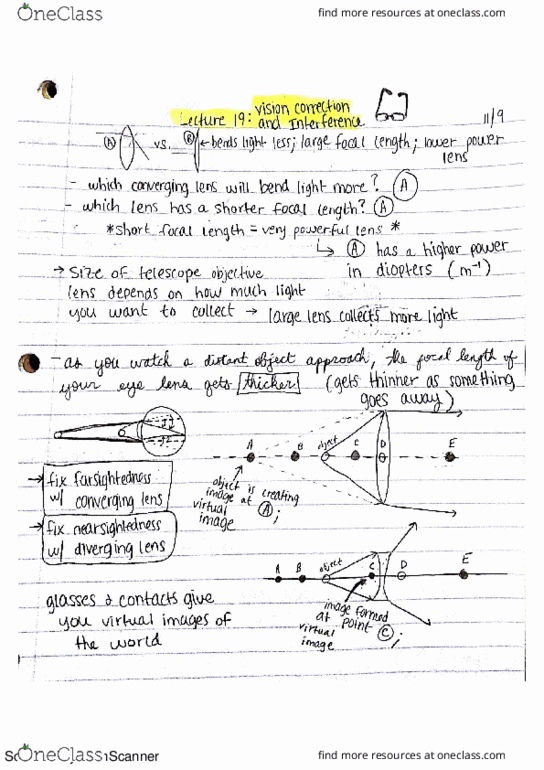 OneClass
find more resources at oneclass.com
Lecture 19: vision correction
and Interference
11/9
A vs. B ← bends light less; large focal length; lower power
lens
- which converging lens will bend light more? A
- which lens has a shorter focal length? A
*short focal length = very powerful lens *
↳ A has a higher power
in diopters (m⁻¹)
→ Size of telescope objective
lens depends on how much light
you want to collect → large lens collects more light
- as you watch a distant object approach, the focal length of
your eye lens gets thicker (gets thinner as something
goes away)
A B object C D E
object is creating
image at A;
virtual
image
→ fix farsightedness
w/ converging lens
→ fix nearsightedness
w/ diverging lens
A B object C D E
image formed
at point C;
virtual
image
glasses & contacts give
you virtual images of
the world
OneClass
Scanner
find more resources at oneclass.com